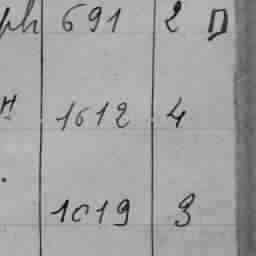 ph 691 2 D
н 1612 4
1019 3